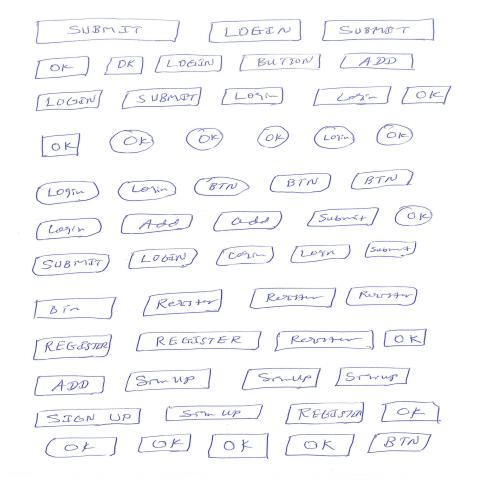 SUBMIT LOGIN SUBMIT
OK OK LOGIN BUTTON ADD
LOGIN SUBMIT Login Login OK
OK OK OK OK Login OK
Login Login BTN BTN BTN
Login Add add Submit OK
SUBMIT LOGIN Login Login Submit
Btn Register Register Register
REGISTER REGISTER Register OK
ADD SignUp SignUp SignUp
SIGN UP Sign Up REGISTER OK
OK OK OK OK BTN